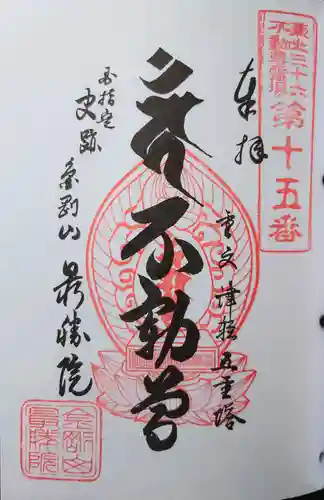 東北三十六
不動尊霊場
第十五番
奉拝
重文 津軽五重塔
不動尊
国指定
史跡
金剛山 最勝院
金剛山
最勝院